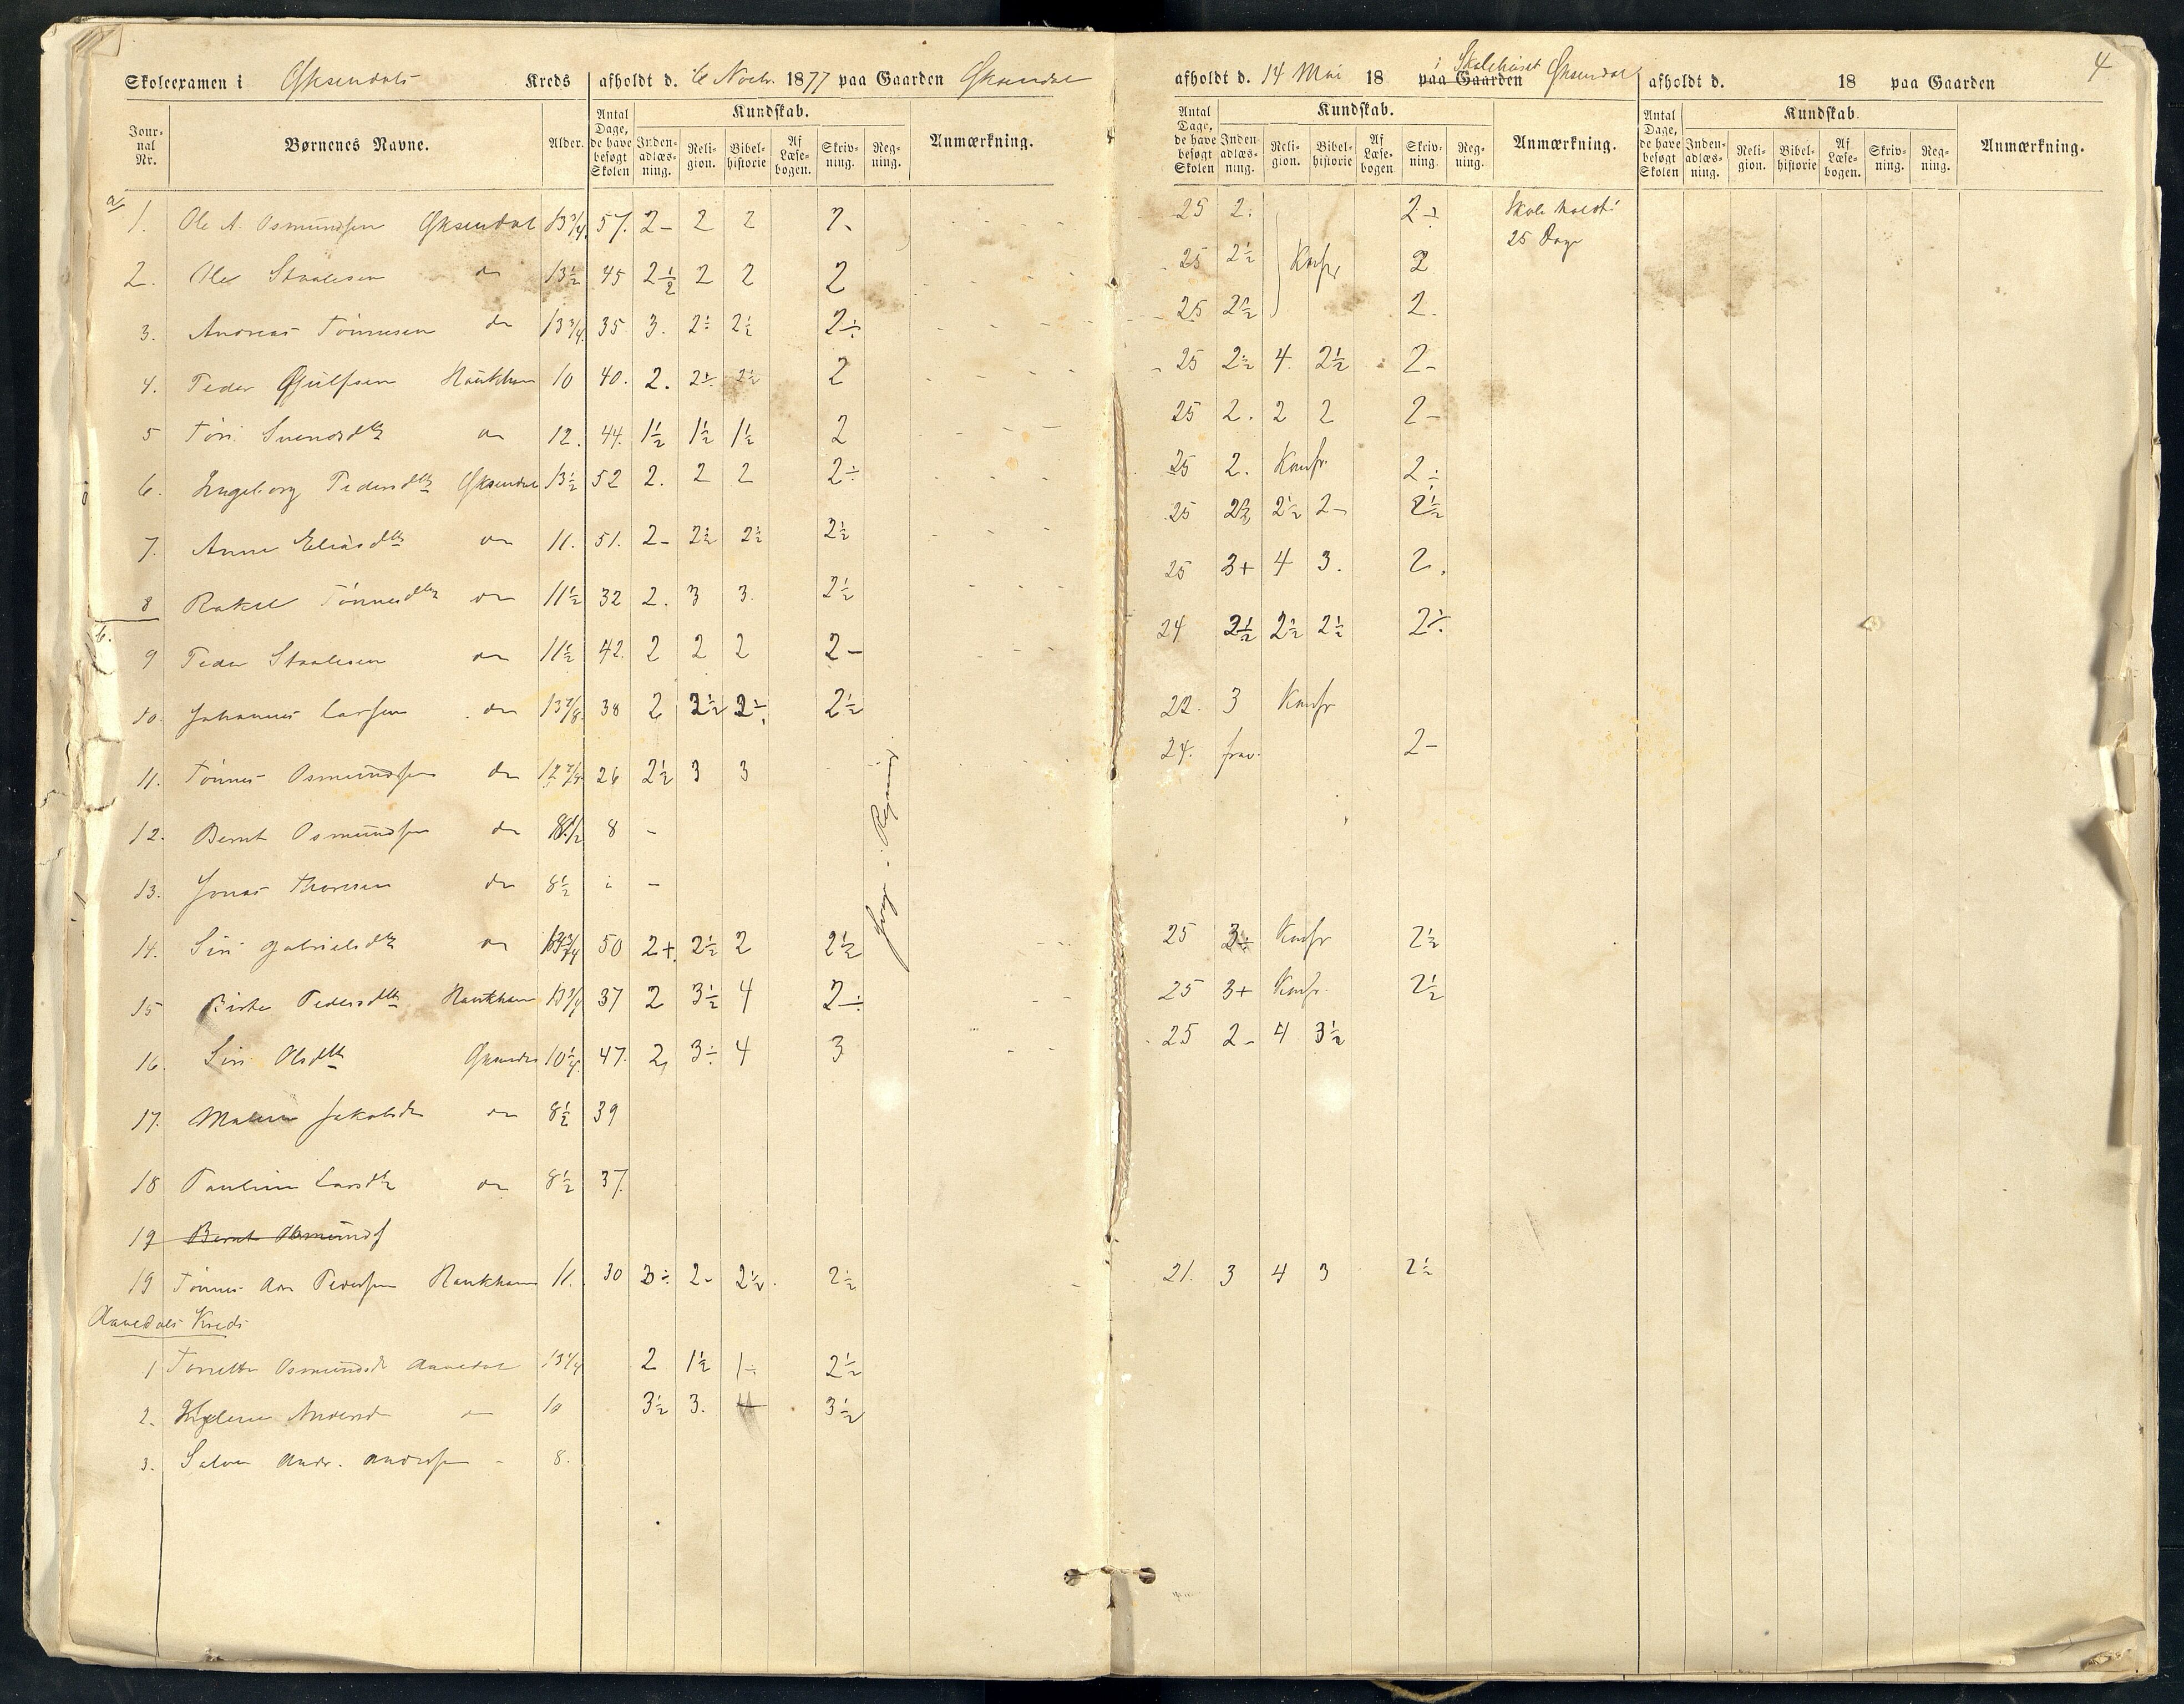 4
Skoleexamen i Øksendals Kreds afholdt d. 6 Novbr. 1877 paa Gaarden Øksendal
afholdt d. 14 Mai 18 paa Gaarden i Skolehuset Øksendal
afholdt d. 18 paa Gaarden
Jour-nal Nr. Børnenes Navne. Alder. Antal Dage, de have besøgt Skolen Kundskab. Inden-adlæs-ning. Reli-gion. Bibel-historie Af Læse-bogen. Skriv-ning. Reg-ning. Anmærkning.
Antal Dage, de have besøgt Skolen Kundskab. Inden-adlæs-ning. Reli-gion. Bibel-historie Af Læse-bogen Skriv-ning. Reg-ning. Anmærkning.
Antal Dage, de have besøgt Skolen Kundskab. Inden-adlæs-ning. Reli-gion. Bibel-historie Af Læse-bogen. Skriv-ning. Reg-ning. Anmærkning.
a,
1. Ole A. Osmundsen Øksendal 13 3/4 57. 2- 2 2 2- 25 2. 2÷ Skole holdt i 25 Dage
2. Ole Staalesen do 13 1/2 45 2 1/2 2 2 2 25 2 1/2 Konfr. 2
3. Andreas Tønnesen do 13 3/4 35 3. 2÷ 2 1/2 2÷ 25 2 1/2 2.
4. Peder Gjulfsen Haukhom 10 40. 2. 2÷ 2 1/2 2 25 2 1/2 4. 2 1/2 2-
5 Tori Svendsdtr do 12. 44. 1 1/2 1 1/2 1 1/2 2 25 2. 2 2 2-
6. Ingeborg Pedersdtr Øksendal 13 1/2 52 2. 2 2 2÷ 25 2. Konfr. 2÷
7. Anne Eliasdtr do 11. 51. 2- 2 1/2 2 1/2 2 1/2 25 2 1/2 2 1/2 2- 2 1/2
8 Rakel Tønnesdtr do 11 1/2 32 2. 3 3. 2 1/2 25 3+ 4 3. 2.
b.
9 Peder Staalesen do 11 1/2 42. 2 2 2 2- 24 2 1/2 2 1/2 2 1/2 2÷
10. Johannes Larsen do 13 7/8 38 2 2 1/2 2÷ 2 1/2 22. 3 Konfr
11. Tønnes Osmundsen do 12 3/4 26 2 1/2 3 3 24. frav. 2-
12. Bernt Osmundsen do 8 1/2 8 -
13. Jonas Thoresen do 8 1/2 -
14. Siri Gabrielsdtr do 13 3/4 50 2+ 2 1/2 2 2 1/2 25 3÷ Konfr 2 1/2
15 Birte Pedersdtr Haukhom 13 3/4 37 2 3 1/2 4 2÷ 25 3+ Konfr. 2 1/2
16. Siri Olsdtr Øksendal 10 1/4 47. 2, 3÷ 4 3 25 2- 4 3 1/2
17. Malene Jakobsdtr do 8 1/2 39
18 Pauline Larsdtr do 8 1/2 37.
19 Bernt Osmunds
19 Tønnes Aan Pedersen Haukhom 11. 30 3÷ 2- 2 1/2 2 1/2 21. 3 4 3 2 1/2
Aavedals Kreds
1 Tonette Osmundsdtr Aavedal 13 1/4 2 1 1/2 1÷ 2 1/2
2. Helene Andersd do 10 3 1/2 3. 4 3 1/2
3. Salve Andr. Andersen - 8.